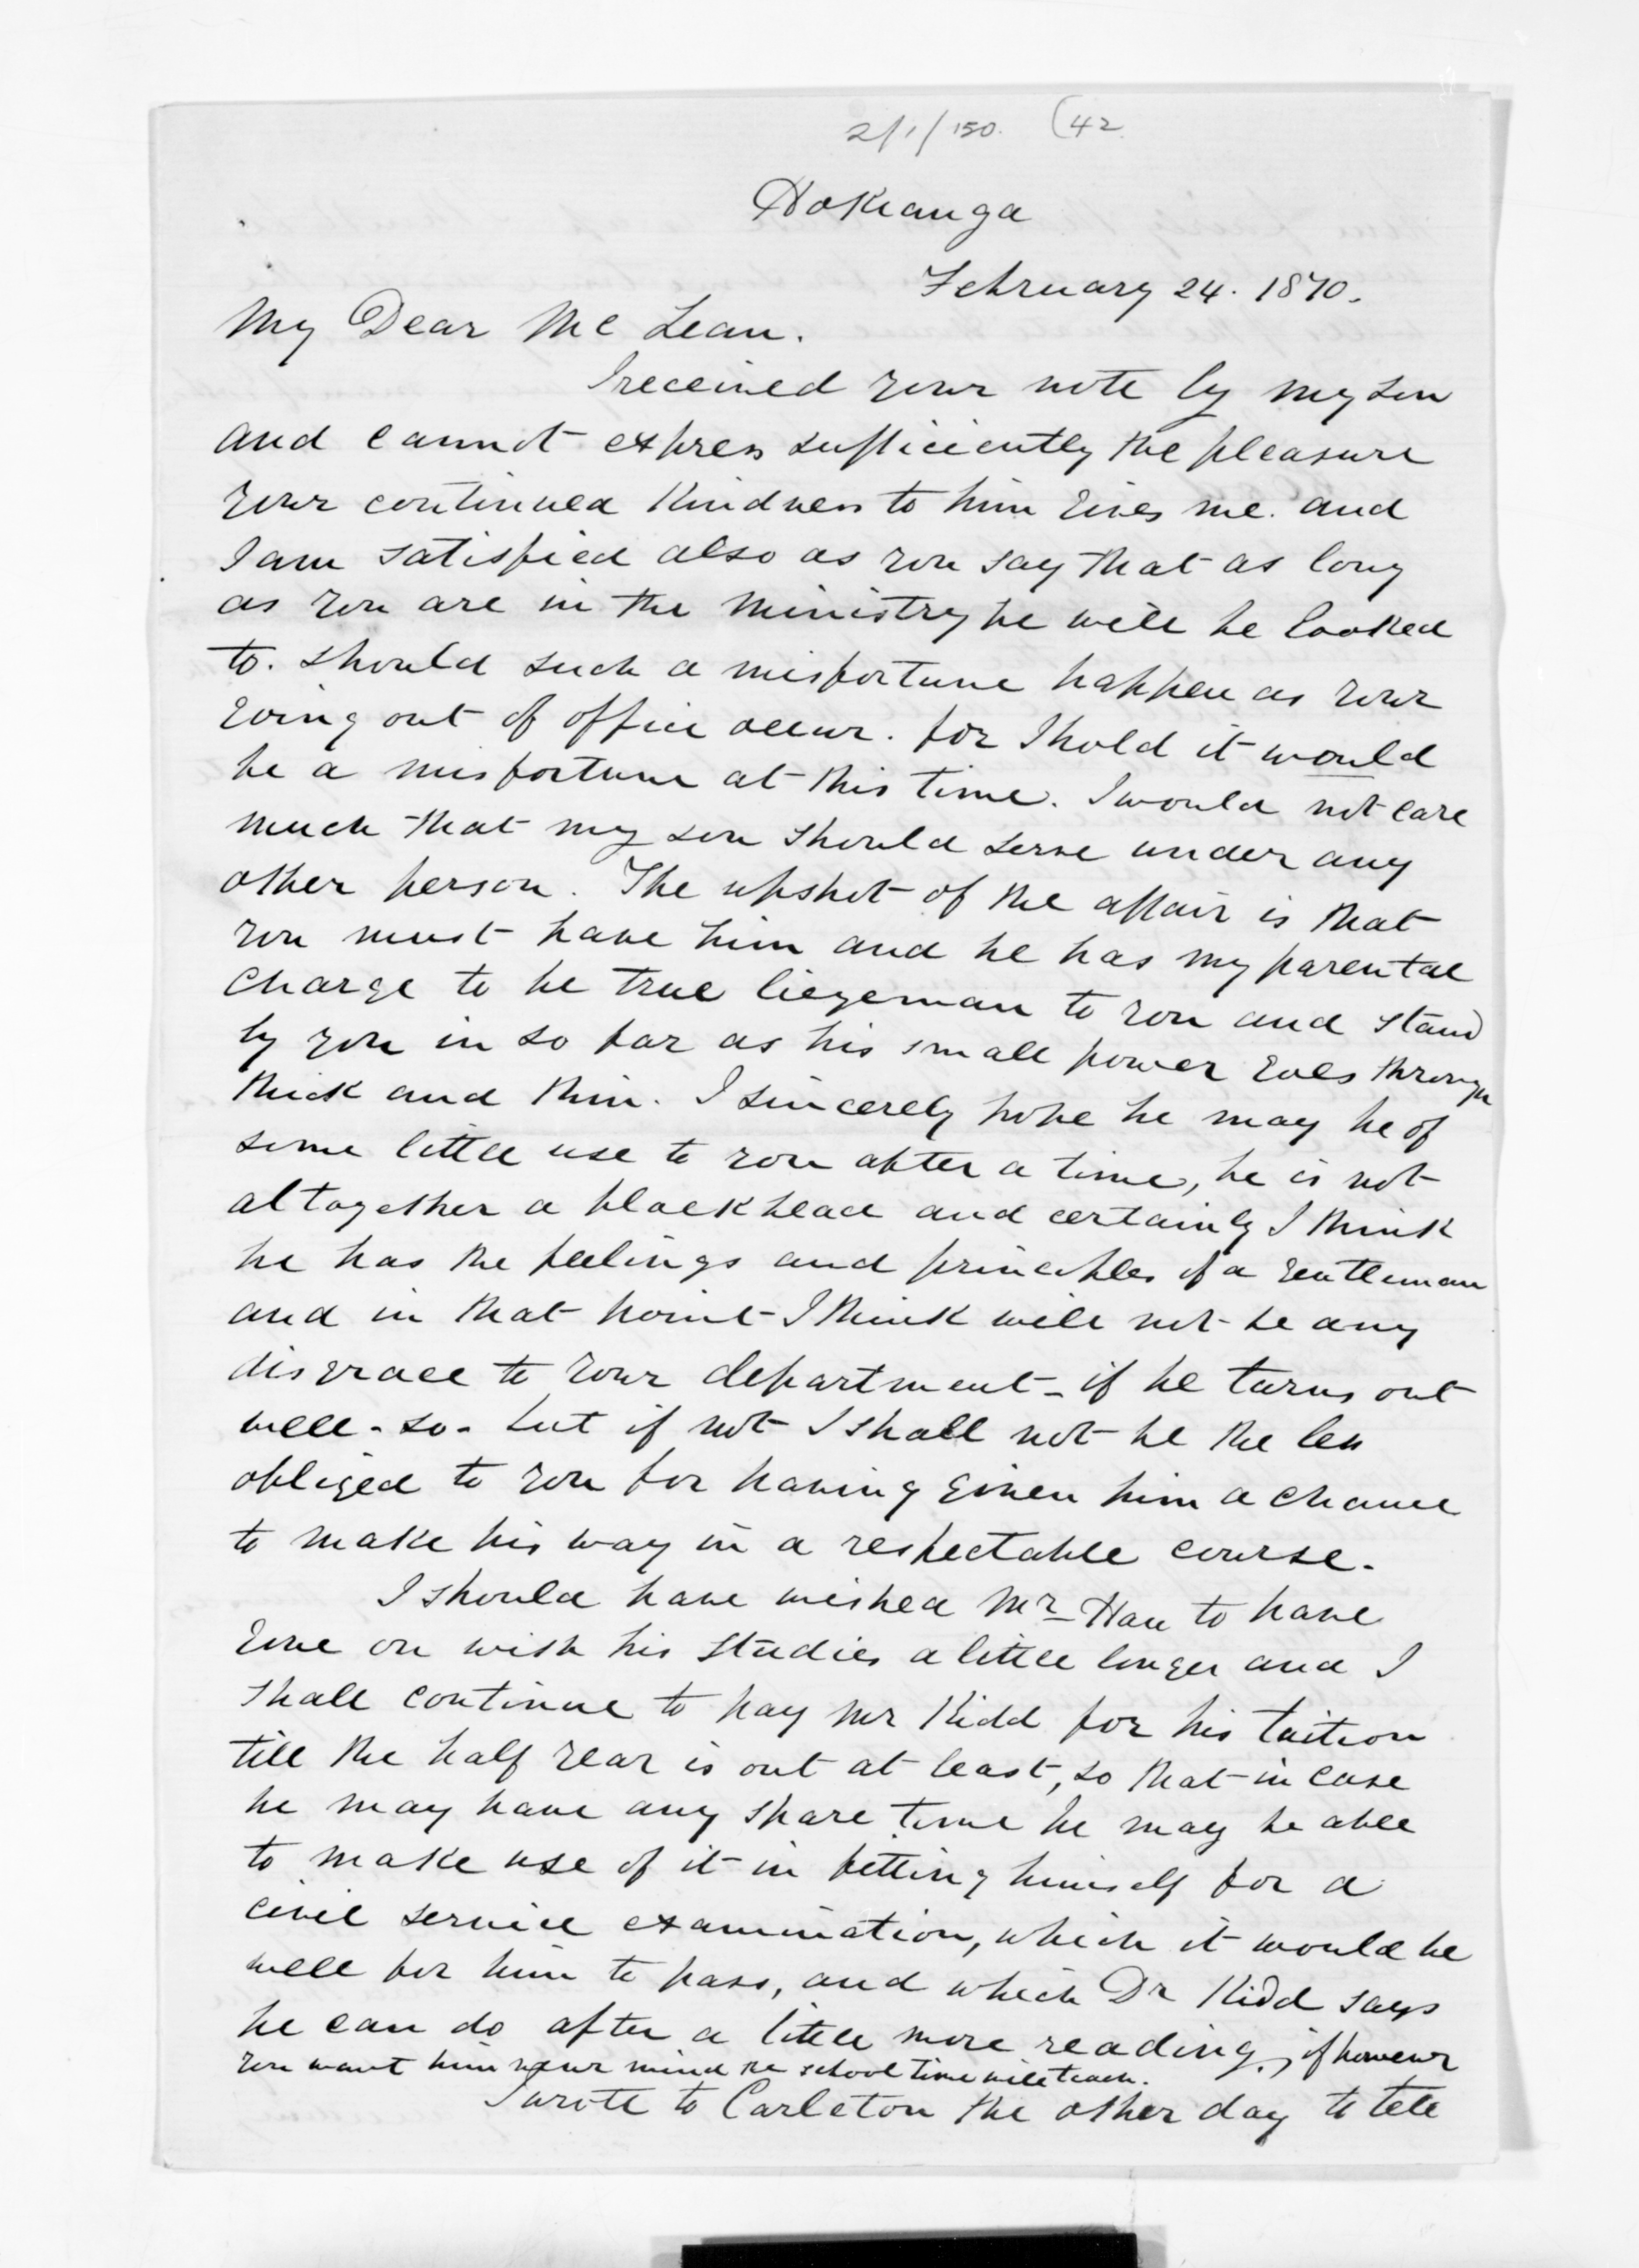 2/1/150. (42
Hokianga
February 24. 1870.
My Dear McLean.
I received your note by my son
and cannot express sufficiently the pleasure
your continued kindness to him gives me. and
I am satisfied also as you say that as long
as you are in the Ministry he will be looked
to. should such a misfortune happen as your
going out of office occur. for I hold it would
be a misfortune at this time. I would not care
much that my son should serve under any
other person. The upshot of the affair is that
you must have him and he has my parental
charge to be true liegeman to you and stand
by you in so far as his small power goes through
thick and thin. I sincerely hope he may be of
some little use to you after a time, he is not
altogether a blockhead and certainly I think
he has the feelings and principles of a gentleman
and in that point I think will not be any
disgrace to your department - if he turns out
well - so - but if not I shall not be the less
obliged to you for having given him a chance
to make his way in a respectable course.
I should have wished Mr Hau to have
gone on with his studies a little longer and I
shall continue to pay Mr Kidd for his tuition
till the half year is out at least, so that in case
he may have any spare time he may be able
to make use of it in fitting himself for a
civil service examination, which it would be
well for him to pass, and which Dr Kidd says
he can do after a little more reading, if however
you want him never mind the school time will teach.
I wrote to Carleton the other day to tell